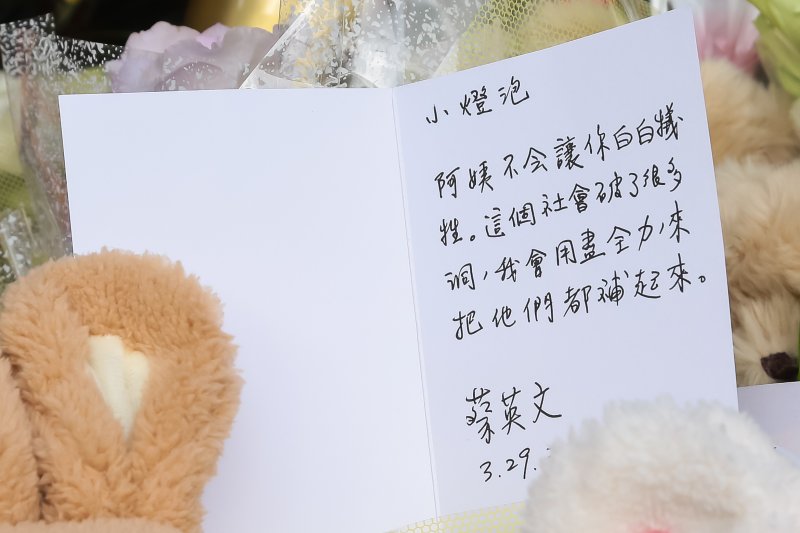 小燈泡
阿姨不会讓你白白犧
牲。這個社會破了很多
洞，我會用盡全力，來
把他們都補起來。
蔡英文
3.29.